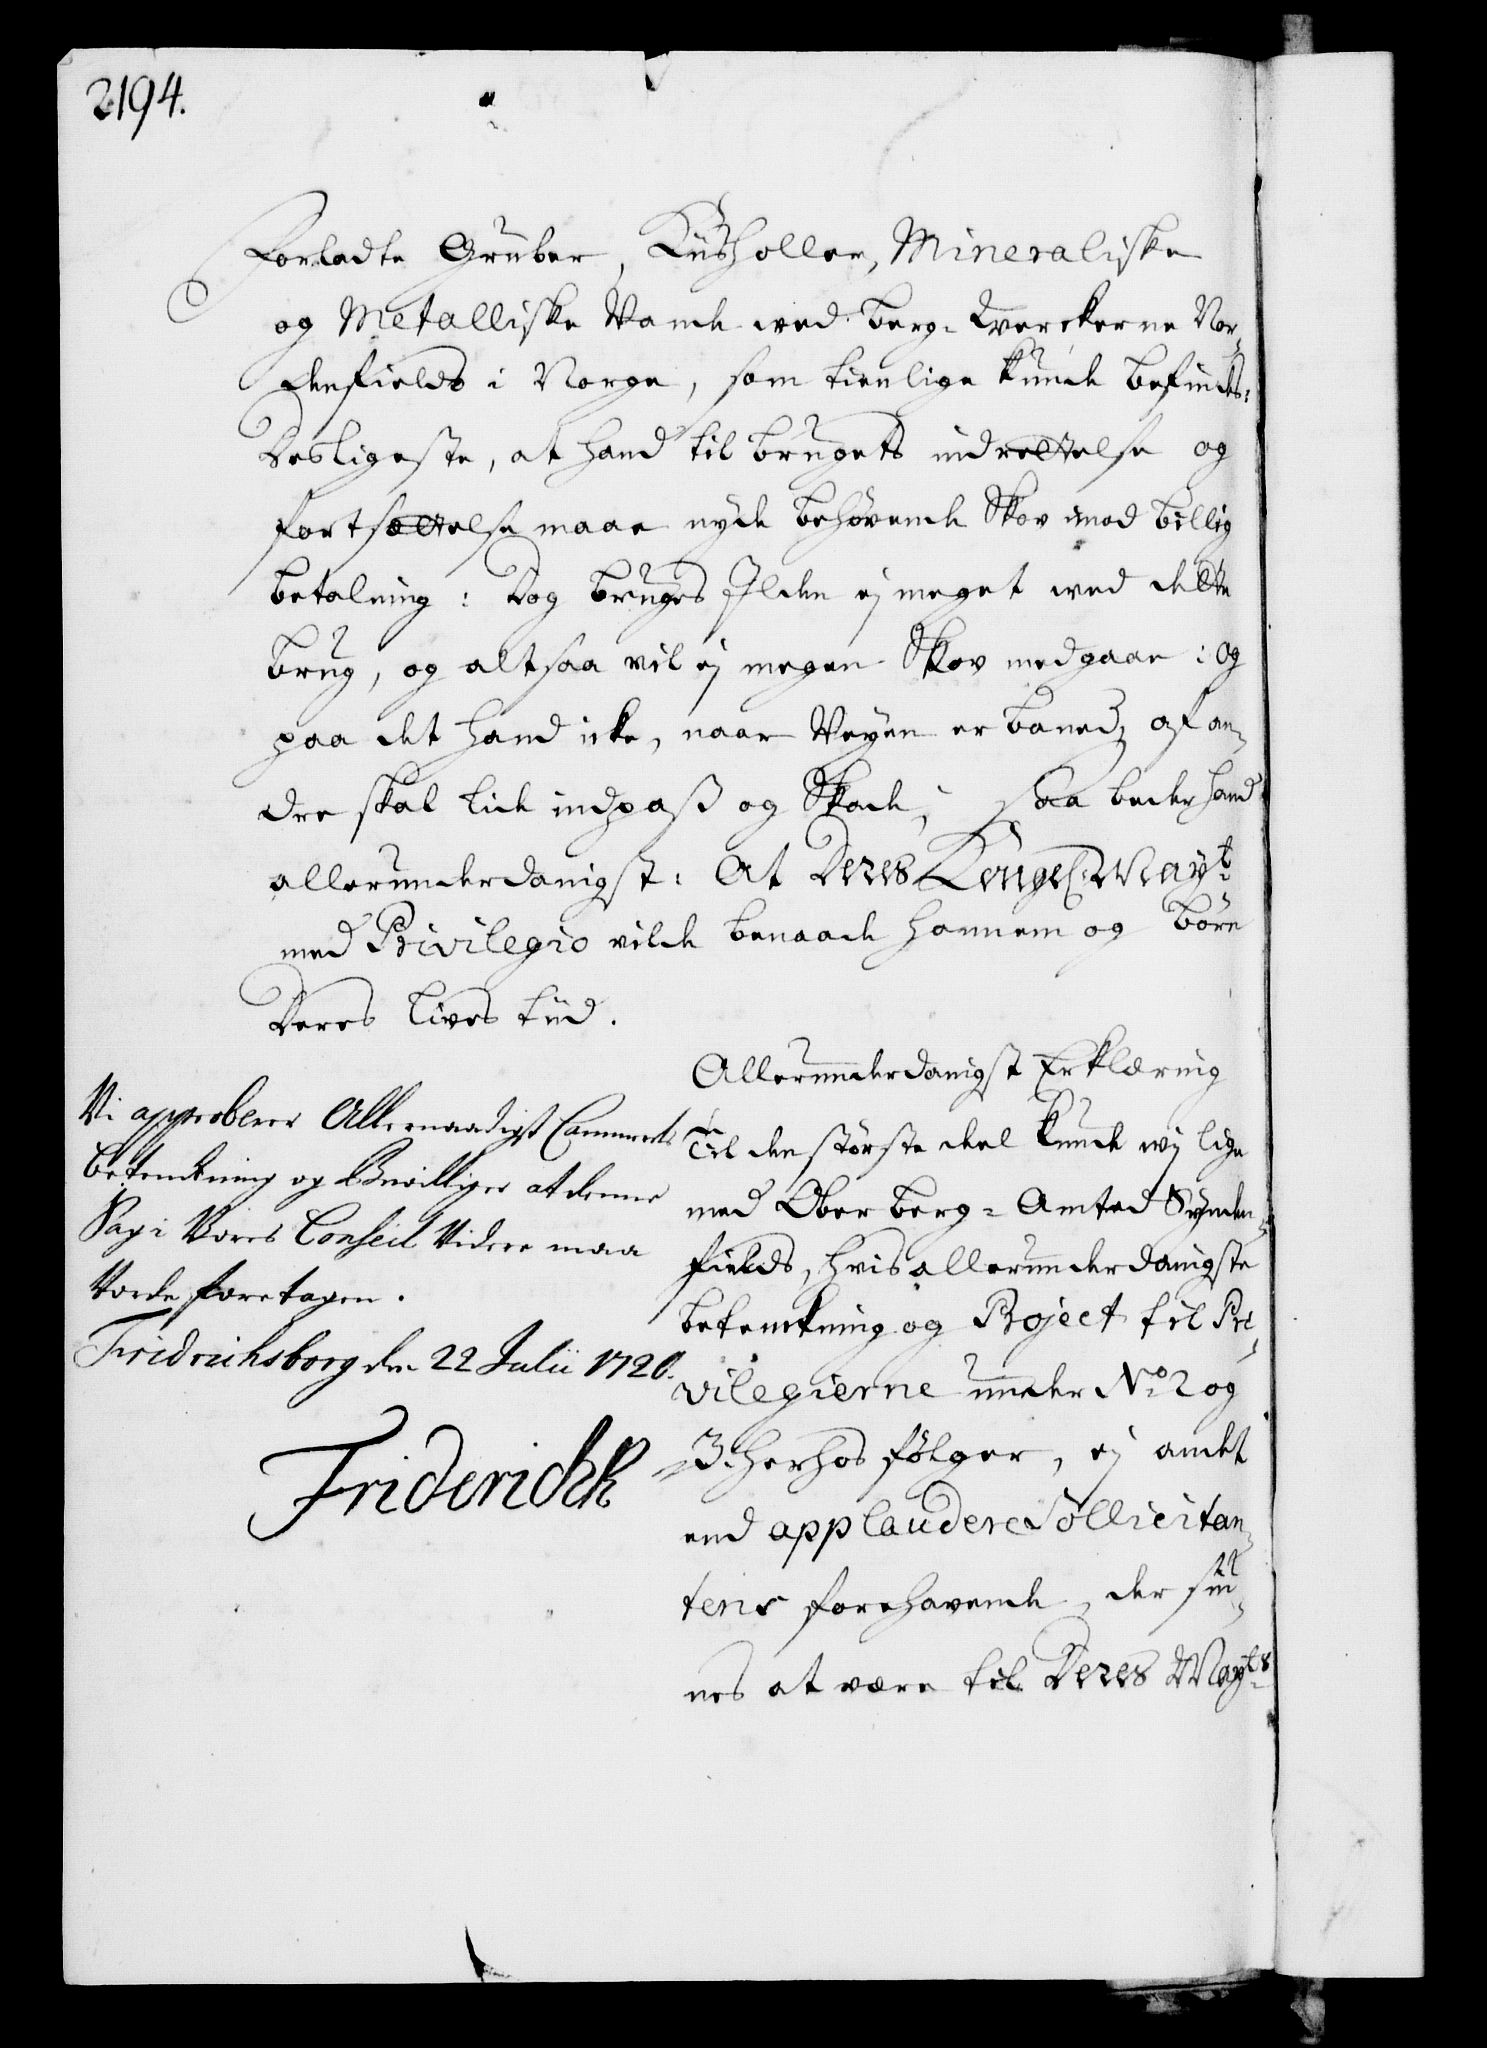 2194.
Forladte Gruber, Kiisholler, Mineraliske
og Metalliske Vande ved berg-Werckerne Nor-
denfields i Norge, som tienlige kunde befindes:
Desligeste, at hand til brugets indrettelse og
fortsættelse maae nyde behøvende Skov imod billig
betalning: Dog bruges Ilden ej meget ved dette
brug, og altsaa vil ej megen Skov medgaae: og
paa det hand icke, naar Veyen er baned, af an-
dre skal lide indpaß og Skade, saa beder hand
allerunderdanigst: At Deres Kongel: May:t
med Privilegio vilde benaade hannem og børn
Deres lives tiid.
Allerunderdanigst Erklæring
Til den største deel kunde wj lige
med Ober berg-Amted Synden-
fields, hvis allerunderdanigste
betenkning og Project til Pri-
vilegierne under No 2 og
3. herhos følger, ej andet
end applaudere Sollicitan-
tens forehavende, der siu-
nes at være til Deres May:ts
Vi approberer Allernaadigst Cammerets
betenkning og Bevilliger at denne
Sag i Vores Conseil Videre maa
Vorde foretagen.
Fridrichsborg den 22 Julii 1720.
Friderich R